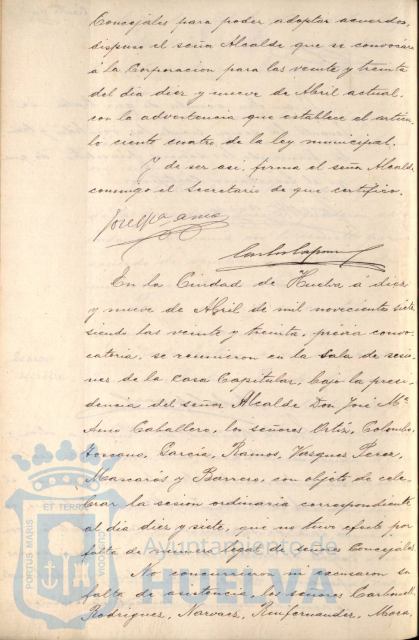 Concejales para poder adoptar acuerdos,
dispuso el señor Alcalde que se convocára
á la Corporacion para las veinte y treinta
del dia diez y nueve de Abril actual.
con la advertencia que establece el articu-
lo ciento cuatro de la ley municipal.
Y de ser asi, firma el señor Alcalde
conmigo el Secretario de que certifico.
En la Ciudad de Huelva á diez
y nueve de Abril de mil novecientos siete
siendo las veinte y treinta, prévia convo-
catoria, se reunieron en la Sala de sesio-
nes de la casa Capitular, bajo la presi-
dencia del señor Alcalde Don José Mª
Amo Caballero, los señores Ortiz, Colombo,
Toscano, Garcia, Ramos, Vasquez Perez,
Mascarós y Barrero, con objeto de cele-
brar la sesion ordinaria correspondiente
al dia diez y siete, que no tuvo efecto por
falta de número legal de señores Concejales
No concurrieron ni escusaron su
falta de asistencia, los señores Carbonell
Rodriguez, Narvaez, Mora,
PORTUS MARIS
ET TERRÆ
CUSTODIA
Ayuntamiento de
HUELVA